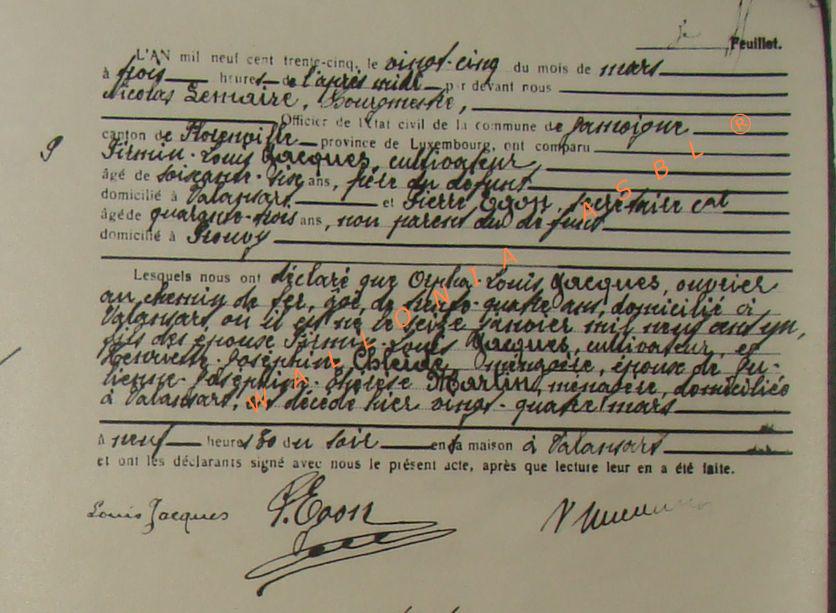 Feuillet.
L'AN mil neuf cent trente-cinq, le vingt-cinq du mois de mars
à trois heures de l'après midi par devant nous
Nicolas Lemaire, Bourgmestre,
Officier de l'état civil de la commune de Jamoigne
9 canton de Florenville province de Luxembourg, ont comparu
Firmin-Louis Jacques, cultivateur,
âgé de soixante-six ans, père du défunt
domicilié à Valansart et Pierre Egon, secrétaire cal
âgé de quarante-trois ans, non parent du défunt
domicilié à Prouvy
Lesquels nous ont déclaré que Orpha-Louis Jacques, ouvrier
au chemin de fer, âgé de trente-quatre ans, domicilié à
Valansart, où il est né le seize janvier mil neuf cent un,
fils des époux Firmin-Louis Jacques, cultivateur, et
Joséphine ménagère, époux de Ju-
lienne-Joséphine-Thérèse Martin, ménagère, domiciliés
à Valansart, est décédé hier vingt-quatre mars
à neuf heures 30 du soir en sa maison à Valansart
et ont les déclarants signé avec nous le présent acte, après que lecture leur en a été faite.
Louis Jacques P. Egon
WALLONIA ASBL ®